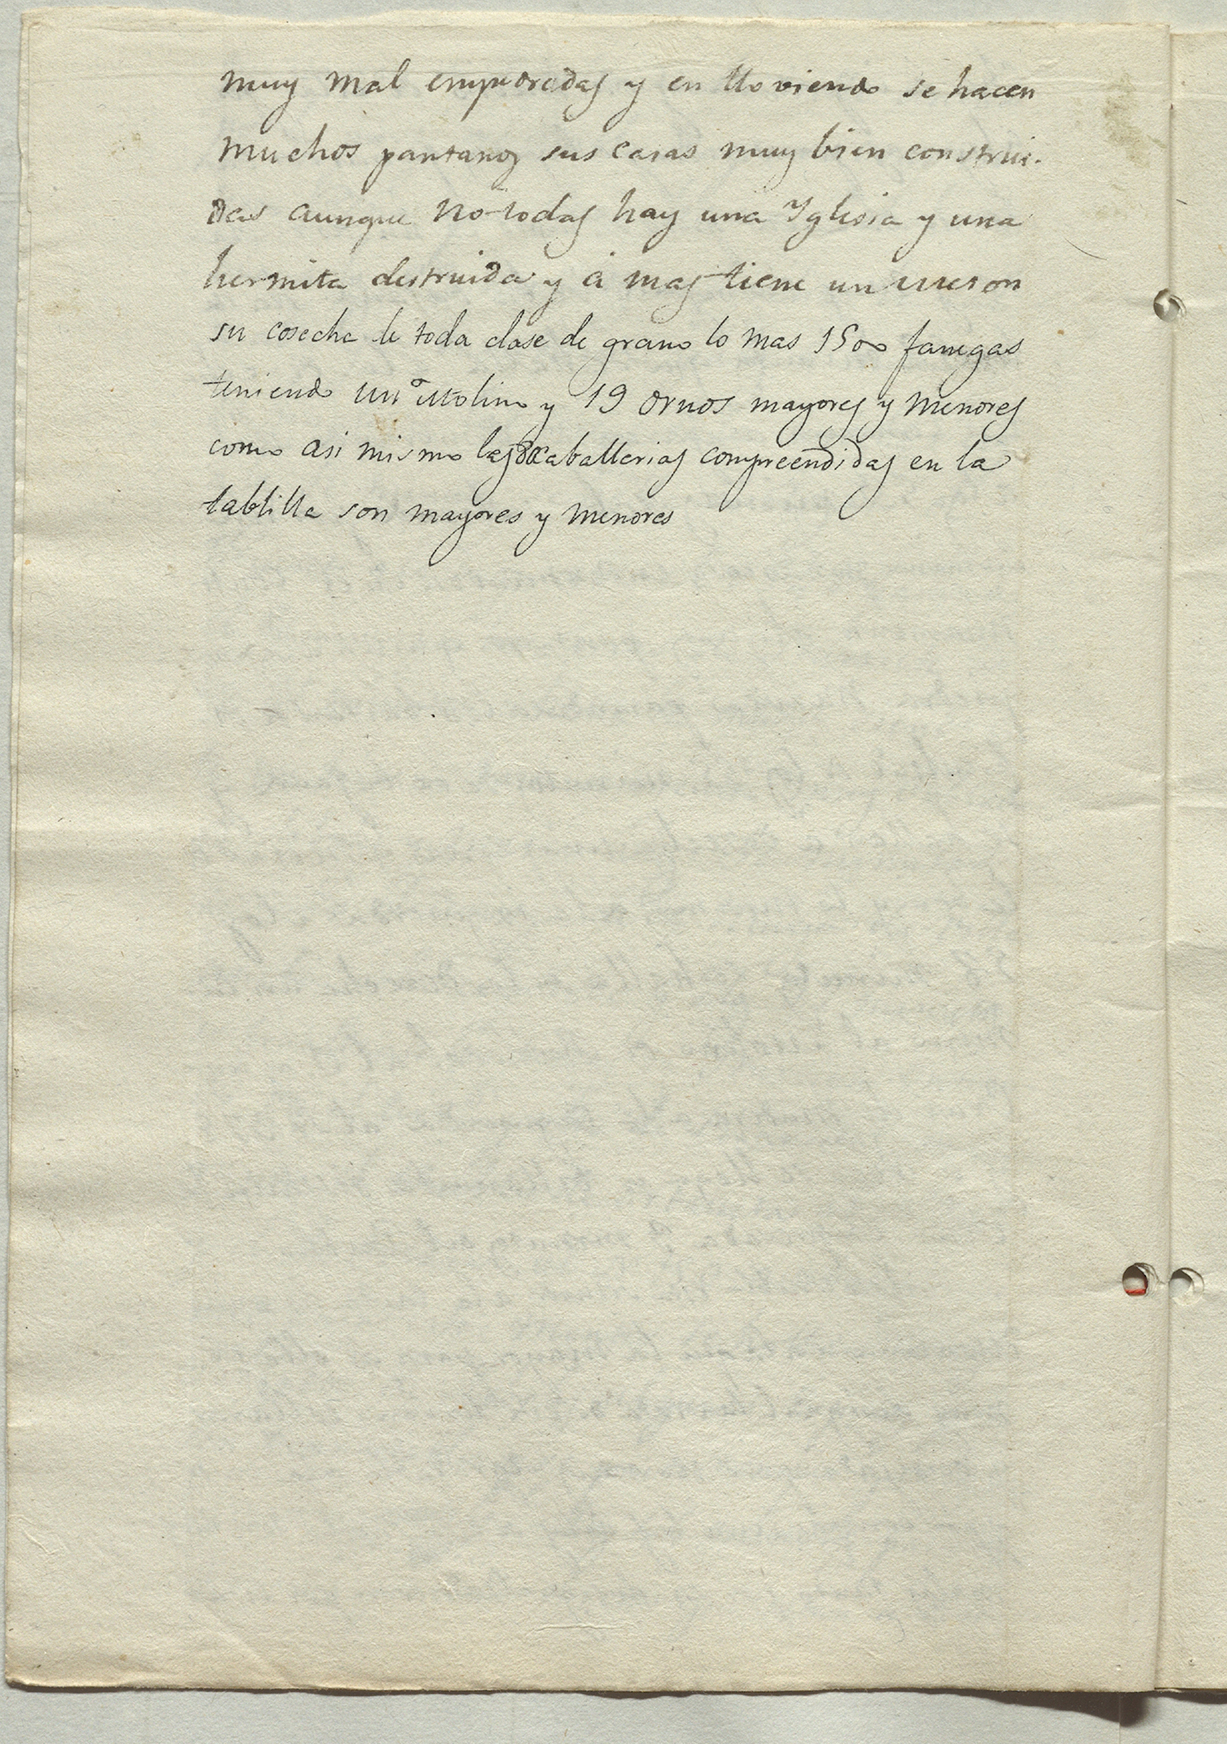 muy mal empedradas y en lloviendo se hacen
muchos pantanos sus casas muy bien construi-
das aunque no todas hay una Yglesia y una
hermita destruida y á mas tiene un meson
su cosecha de toda clase de grano lo mas 1500 fanegas
teniendo un Molino y 19 ornos mayores y menores
como asi mismo las caballerias compreendidas en la
tablilla son mayores y menores